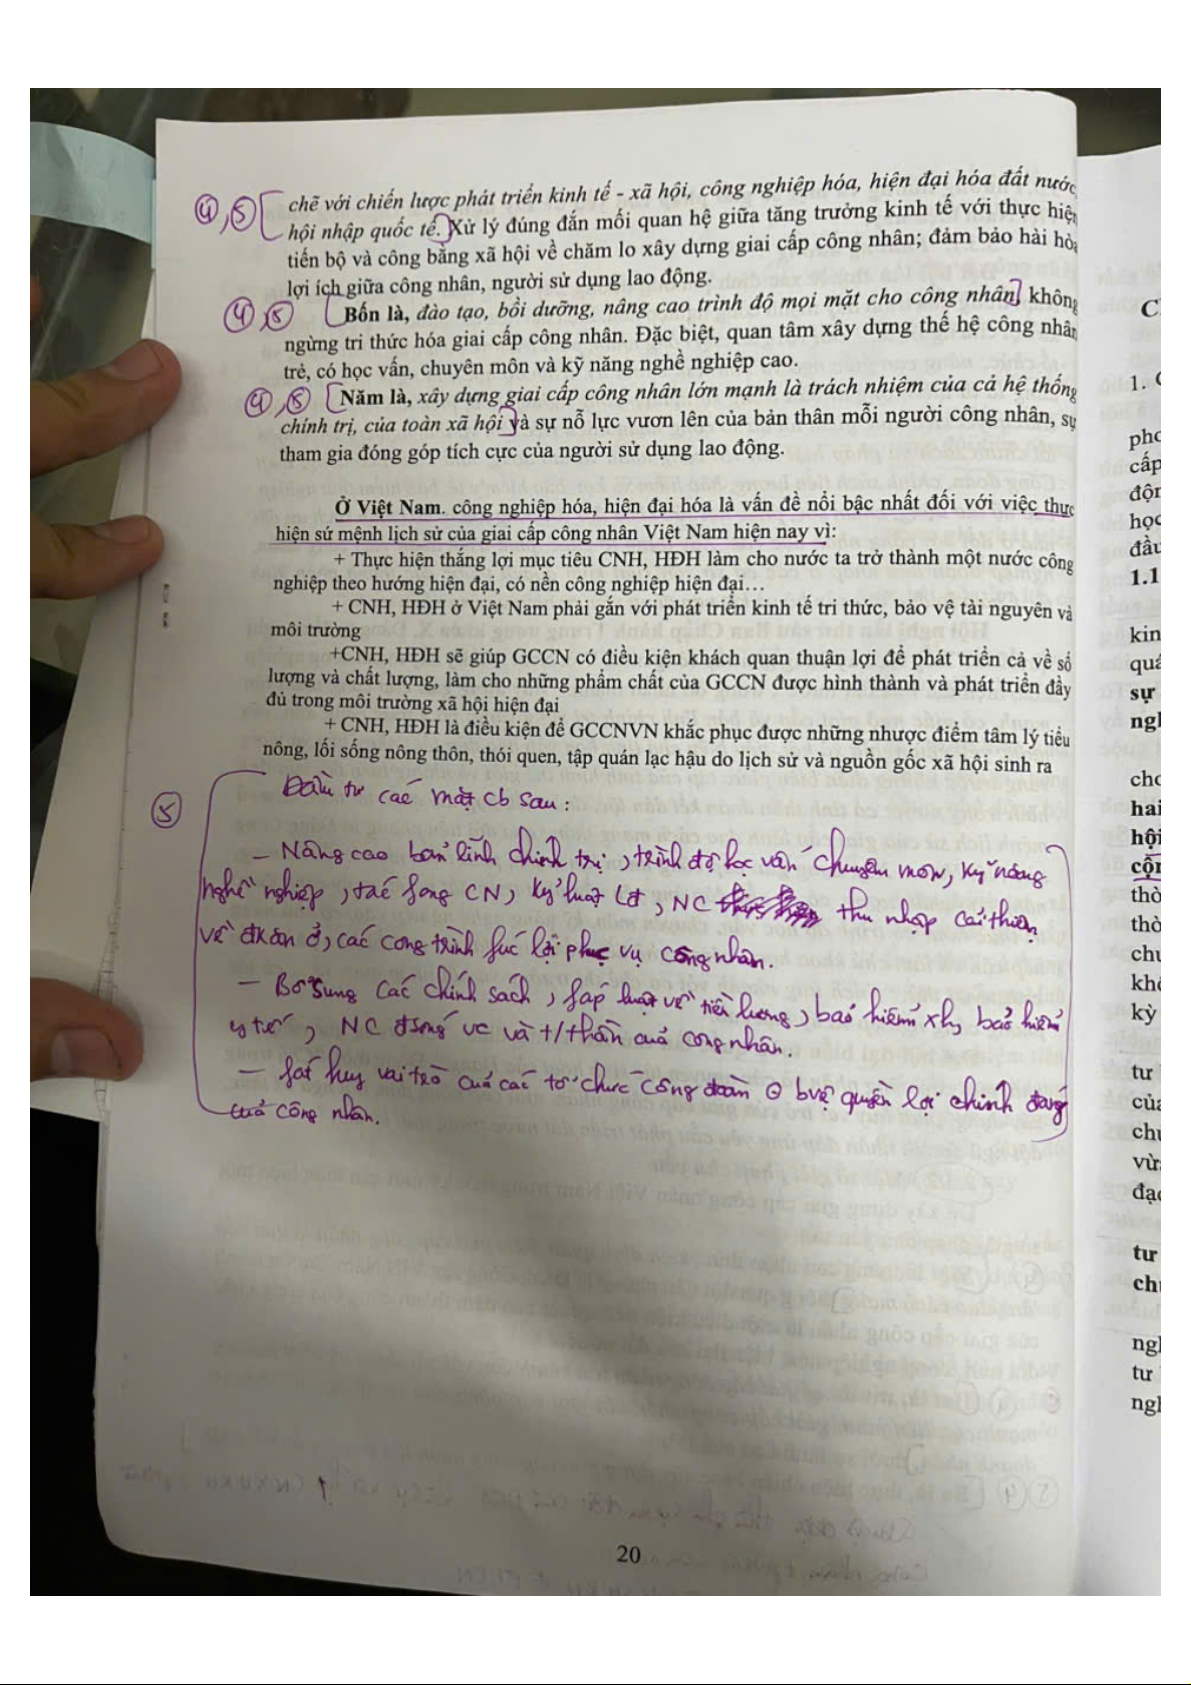 ④,⑤ chẽ với chiến lược phát triển kinh tế - xã hội, công nghiệp hóa, hiện đại hóa đất nước,
hội nhập quốc tế. Xử lý đúng đắn mối quan hệ giữa tăng trưởng kinh tế với thực hiện
tiến bộ và công bằng xã hội về chăm lo xây dựng giai cấp công nhân; đảm bảo hài hòa
lợi ích giữa công nhân, người sử dụng lao động.
④,⑤ Bốn là, đào tạo, bồi dưỡng, nâng cao trình độ mọi mặt cho công nhân, không
ngừng tri thức hóa giai cấp công nhân. Đặc biệt, quan tâm xây dựng thế hệ công nhân
trẻ, có học vấn, chuyên môn và kỹ năng nghề nghiệp cao.
④,⑤ Năm là, xây dựng giai cấp công nhân lớn mạnh là trách nhiệm của cả hệ thống
chính trị, của toàn xã hội và sự nỗ lực vươn lên của bản thân mỗi người công nhân, sự
tham gia đóng góp tích cực của người sử dụng lao động.
Ở Việt Nam. công nghiệp hóa, hiện đại hóa là vấn đề nổi bậc nhất đối với việc thực
hiện sứ mệnh lịch sử của giai cấp công nhân Việt Nam hiện nay vì:
+ Thực hiện thắng lợi mục tiêu CNH, HĐH làm cho nước ta trở thành một nước công
nghiệp theo hướng hiện đại, có nền công nghiệp hiện đại…
+ CNH, HĐH ở Việt Nam phải gắn với phát triển kinh tế tri thức, bảo vệ tài nguyên và
môi trường
+CNH, HĐH sẽ giúp GCCN có điều kiện khách quan thuận lợi để phát triển cả về số
lượng và chất lượng, làm cho những phẩm chất của GCCN được hình thành và phát triển đầy
đủ trong môi trường xã hội hiện đại
+ CNH, HĐH là điều kiện để GCCNVN khắc phục được những nhược điểm tâm lý tiểu
nông, lối sống nông thôn, thói quen, tập quán lạc hậu do lịch sử và nguồn gốc xã hội sinh ra
⑤ Đầu tư các mặt cb sau:
– Nâng cao bản lĩnh chính trị, trình độ học vấn chuyên môn, kỹ năng
nghề nghiệp, tác fong CN, kỷ luật lđ, NC thu nhập cải thiện
về đk ăn ở, các công trình fúc lợi phục vụ công nhân.
– Bổ sung các chính sách, fáp luật về tiền lương, bảo hiểm xh, bảo hiểm
y tế, NC đ sống vc và t/thần của công nhân.
– fát huy vai trò của các tổ chức công đoàn bvệ quyền lợi chính đáng
của công nhân.
20
C
1.
phc
cấp
độn
học
đầu
1.1
kin
quá
sự
ngh
chc
hai
hội
cộn
thờ
thờ
chu
khô
kỳ
tư
của
chu
vừa
đạo
tư
chu
ngh
tư
ngh